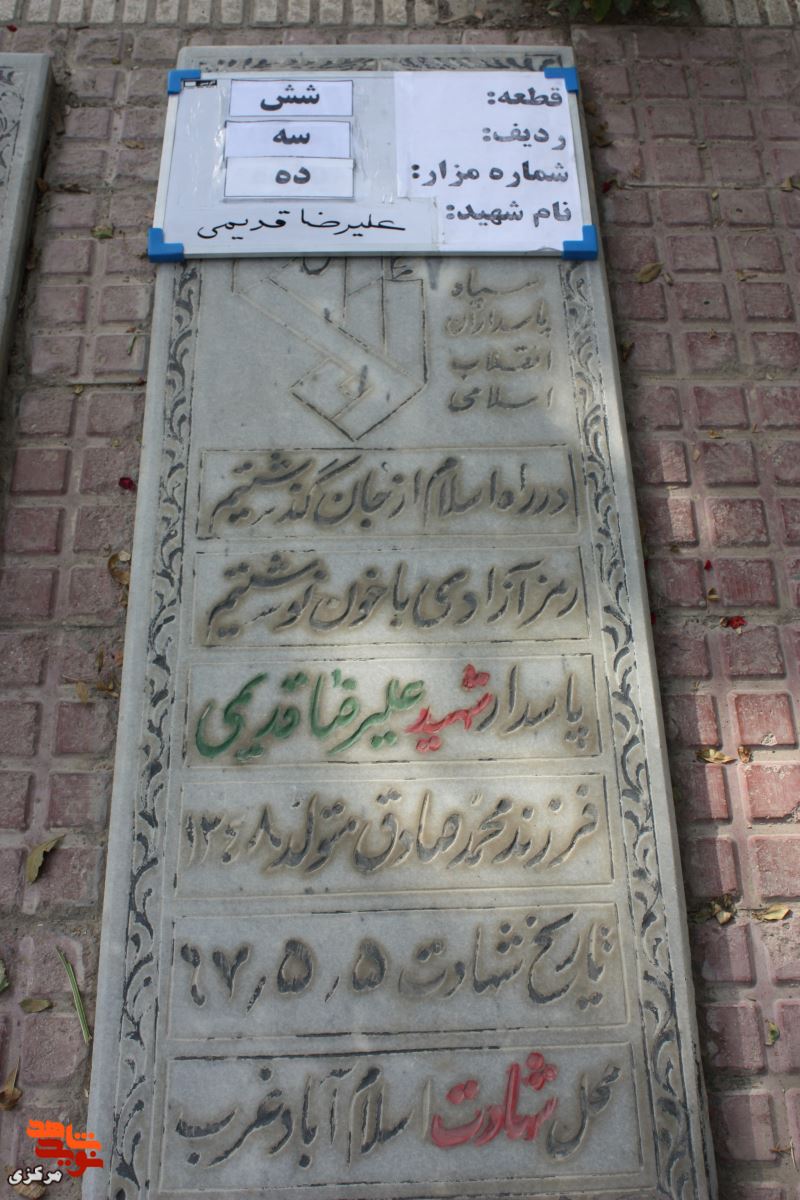 قطعه: شش
ردیف: سه
شماره مزار: ده
نام شهید: علیرضا قدیمی
سپاه
پاسداران
انقلاب
اسلامی
در راه اسلام از جان گذشتیم
رمز آزادی با خون نوشتیم
پاسدار شهید علیرضا قدیمی
فرزند محمد صادق متولد
تاریخ شهادت ۵٫۵٫۶۷
محل شهادت اسلام آباد غرب
نوید شاهد
مرکزی